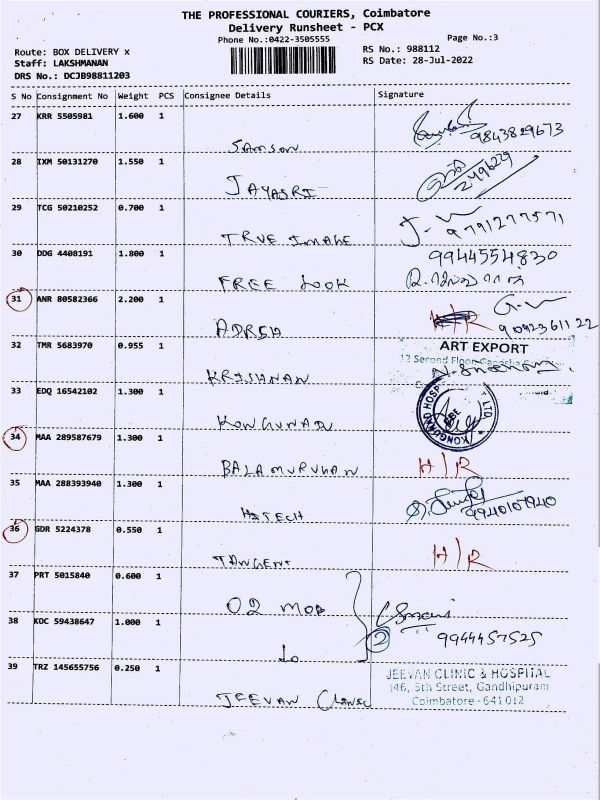 THE PROFESSIONAL COURIERS, Coimbatore
Delivery Runsheet - PCX
Phone No.:0422-3505555
Page No.:3
Route: BOX DELIVERY x
RS No.: 988112
Staff: LAKSHMANAN
RS Date: 28-Jul-2022
DRS No.: DCJB98811203
S No Consignment No Weight PCS Consignee Details Signature
27 KRR 5505981 1.600 1
SAMSON 9843829673
28 IXM 50131270 1.550 1
JAYASRI 249629
29 TCG 50210252 0.700 1
TRUE IMAGE 9791277571
30 DDG 4408191 1.800 1 9944554830
FREE LOOK
31 ANR 80582366 2.200 1
H/R 9092361122
32 TMR 5683970 0.955 1 ART EXPORT
12 Second Floor
KRISHNAN
33 EDQ 16542102 1.300 1
KONGUNAD HOSP LTD.
KONGUNAD
34 MAA 289587679 1.300 1
BALAMURUKAN H/R
35 MAA 288393940 1.300 1
HITECH 9940107940
36 GDR 5224378 0.550 1
TANGENT H/R
37 PRT 5015840 0.600 1
O2 MOB
38 KOC 59438647 1.000 1
2 9944457525
do
39 TRZ 145655756 0.250 1 JEEVAN CLINIC & HOSPITAL
146, 5th Street, Gandhipuram
Coimbatore - 641 012
JEEVAN CLINIC